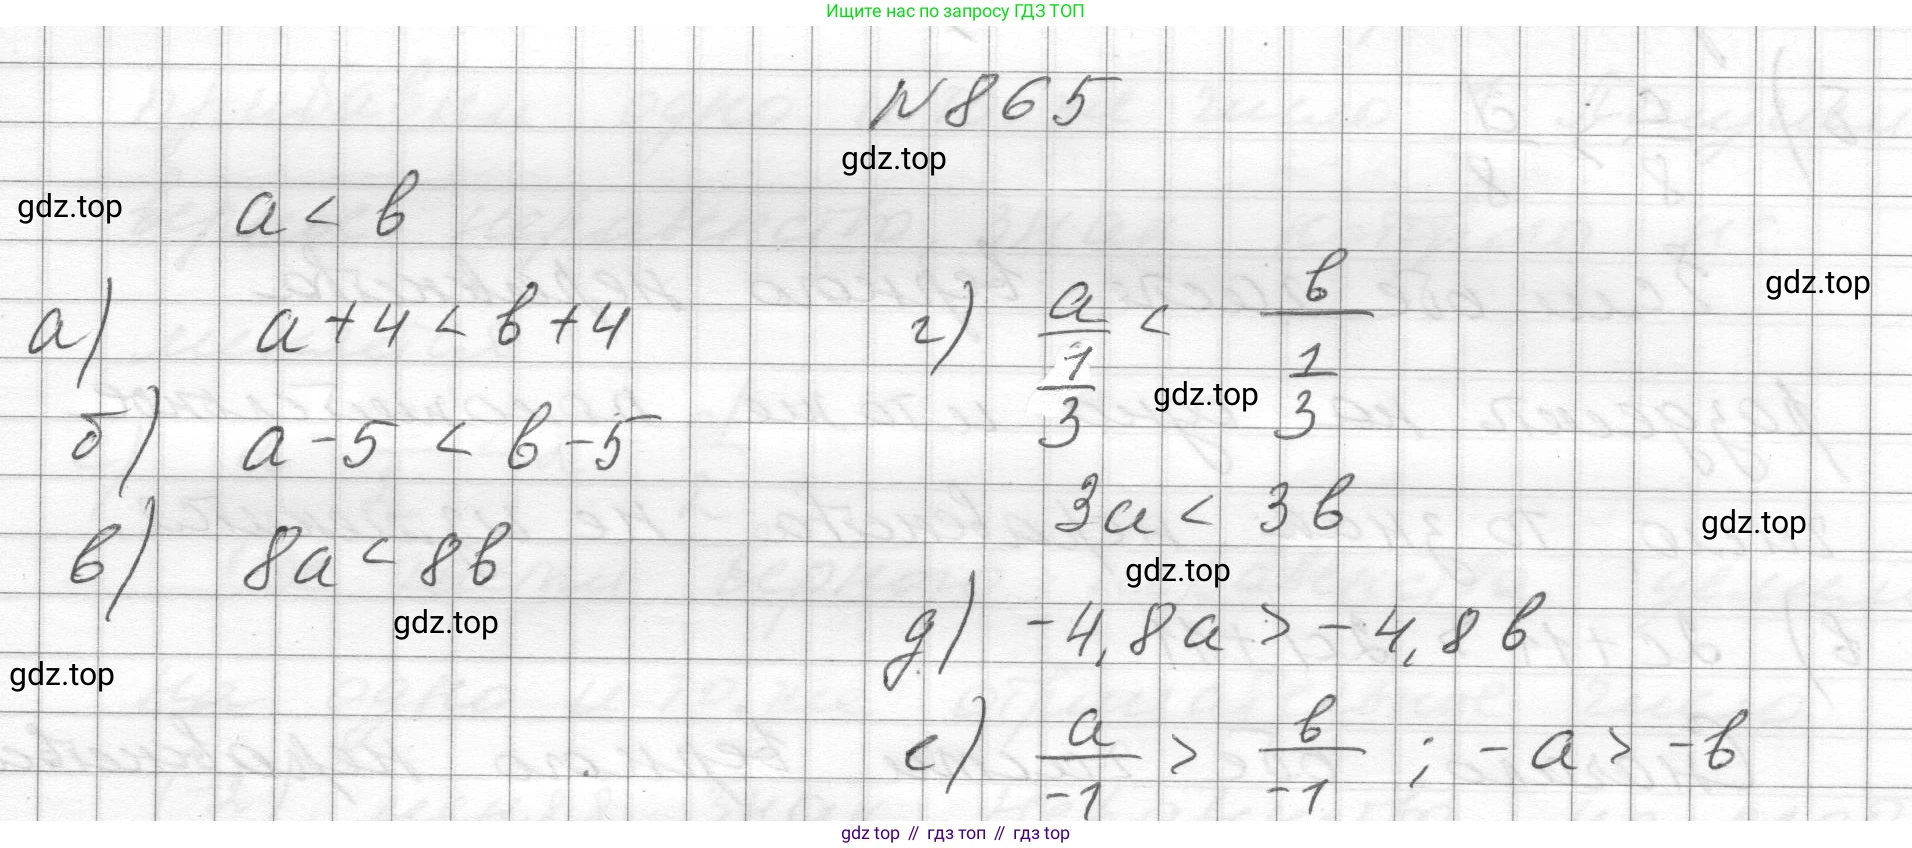 Ищите нас по запросу ГДЗ ТОП
N 865
gdz.top
gdz.top
a < b
а) a + 4 < b + 4
б) a - 5 < b - 5
в) 8a < 8b
gdz.top
gdz.top
г) a/(1/3) < b/(1/3)
gdz.top
gdz.top
3a < 3b
gdz.top
gdz.top
д) -4,8a > -4,8b
е) a/-1 > b/-1 ; -a > -b
gdz top // гдз топ // гдз top